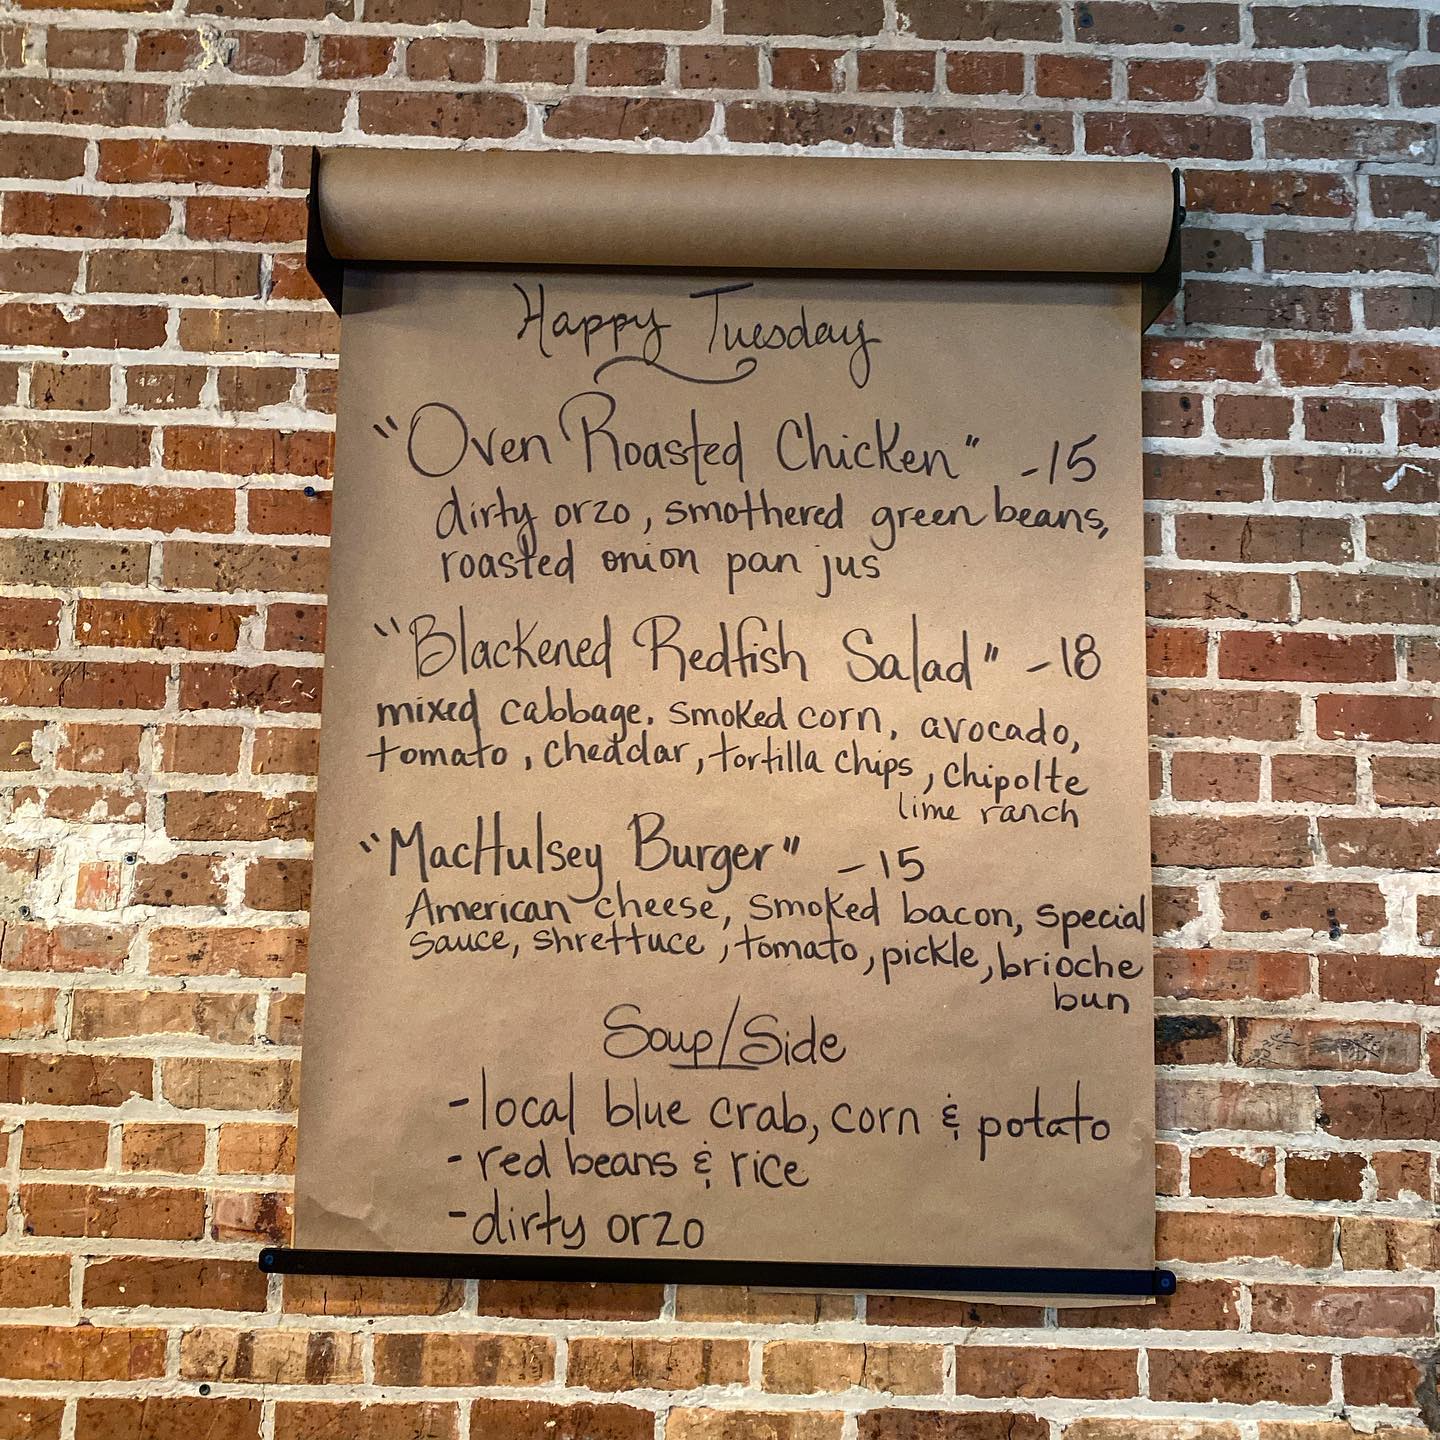 Happy Tuesday
"Oven Roasted Chicken" -15
dirty orzo, smothered green beans,
roasted onion pan jus
"Blackened Redfish Salad" -18
mixed cabbage, smoked corn, avocado,
tomato, cheddar, tortilla chips, chipolte
lime ranch
"MacHulsey Burger" -15
American cheese, smoked bacon, special
sauce, shrettuce, tomato, pickle, brioche
bun
Soup/Side
-local blue crab, corn & potato
-red beans & rice
-dirty orzo